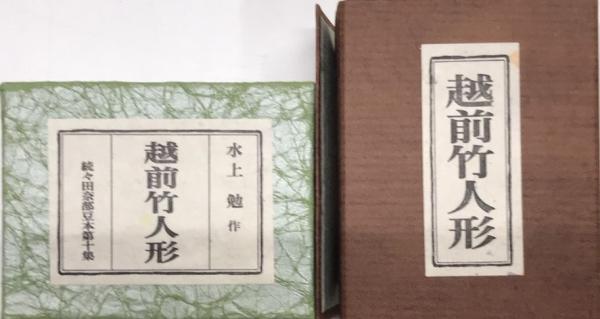 水上 勉 作
越前竹人形
続々田奈部豆本第十集
越前竹人形